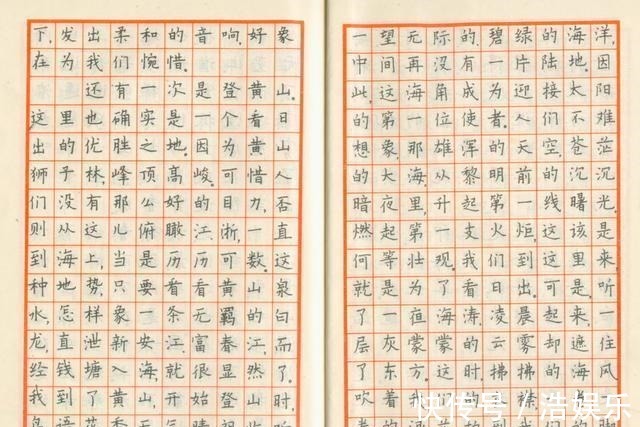 下,发出柔和的音响,好象
在为我们惋惜.
还有一次是登黄山.
这里也确实是一个看日
出的优胜之地.因为黄山
狮子林,峰顶高峻.可惜人
们没有那么好的目力,否
则从这儿俯瞰江、浙,一直
到海上,当是历历可数.这
种地势,只要看看黄山泉
水,怎样象一条无羁的白
龙,直泄新安江、富春江而
经钱塘入海,就很显然了.
我到了黄山,开始登山时,
鸟语花
一望无际的.碧绿的海洋,
中间再没有一片陆地.因
此,这海角成为迎接太阳
的第一位使者.人们不难
想象,那雄浑的天空,苍茫
的大海,从黎明前的沉沉
暗夜里,升起第一线曙光,
燃起第一支火炬,这该是
何等壮观.我们到这里来,
就是为了看日出.可是,听
了一夜海涛,凌晨起来,一
层灰蒙蒙的云雾却遮住
了东方.这时,拂拂的海风
吹着我们的
快传号/浩娱乐